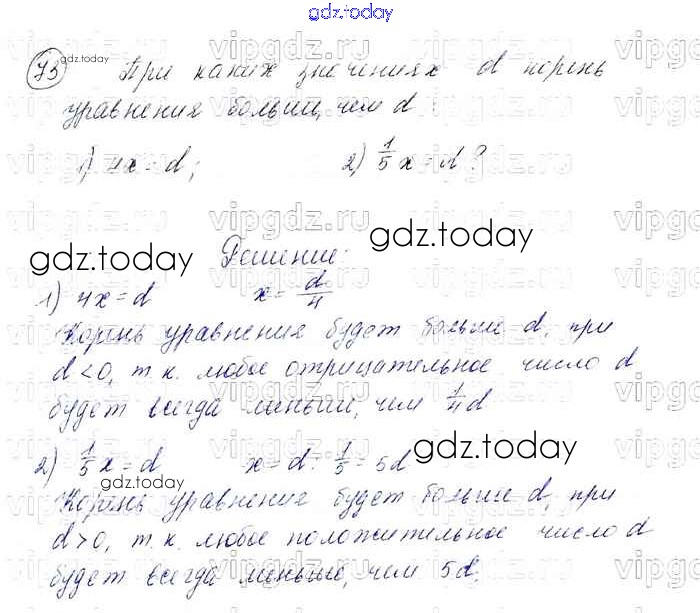 gdz.today
73 При каких значениях d корень
уравнения больши, чем d
1) 4x = d; 2) 1/5 x = d?
Решение:
1) 4x = d x = d/4
Корень уравнения будет больше d, при
d < 0, т.к. любое отрицательное число d
будет всегда меньши, чем 1/4 d
2) 1/5 x = d x = d : 1/5 = 5d
Корень уравнения будет больше d, при
d > 0, т.к. любое положительное число d
будет всегда меньше, чем 5d.